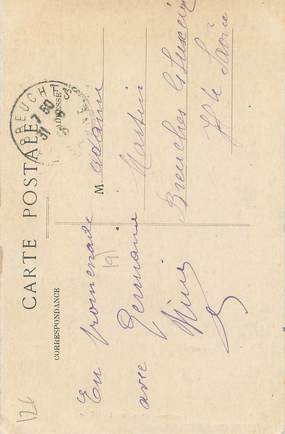 CARTE POSTALE
CORRESPONDANCE
ADRESSE
BREUCHES
7 50
31
8
En promenade
avec Germaine
Madame
Martin
Breuches Luxeuil
Hte Saône
191